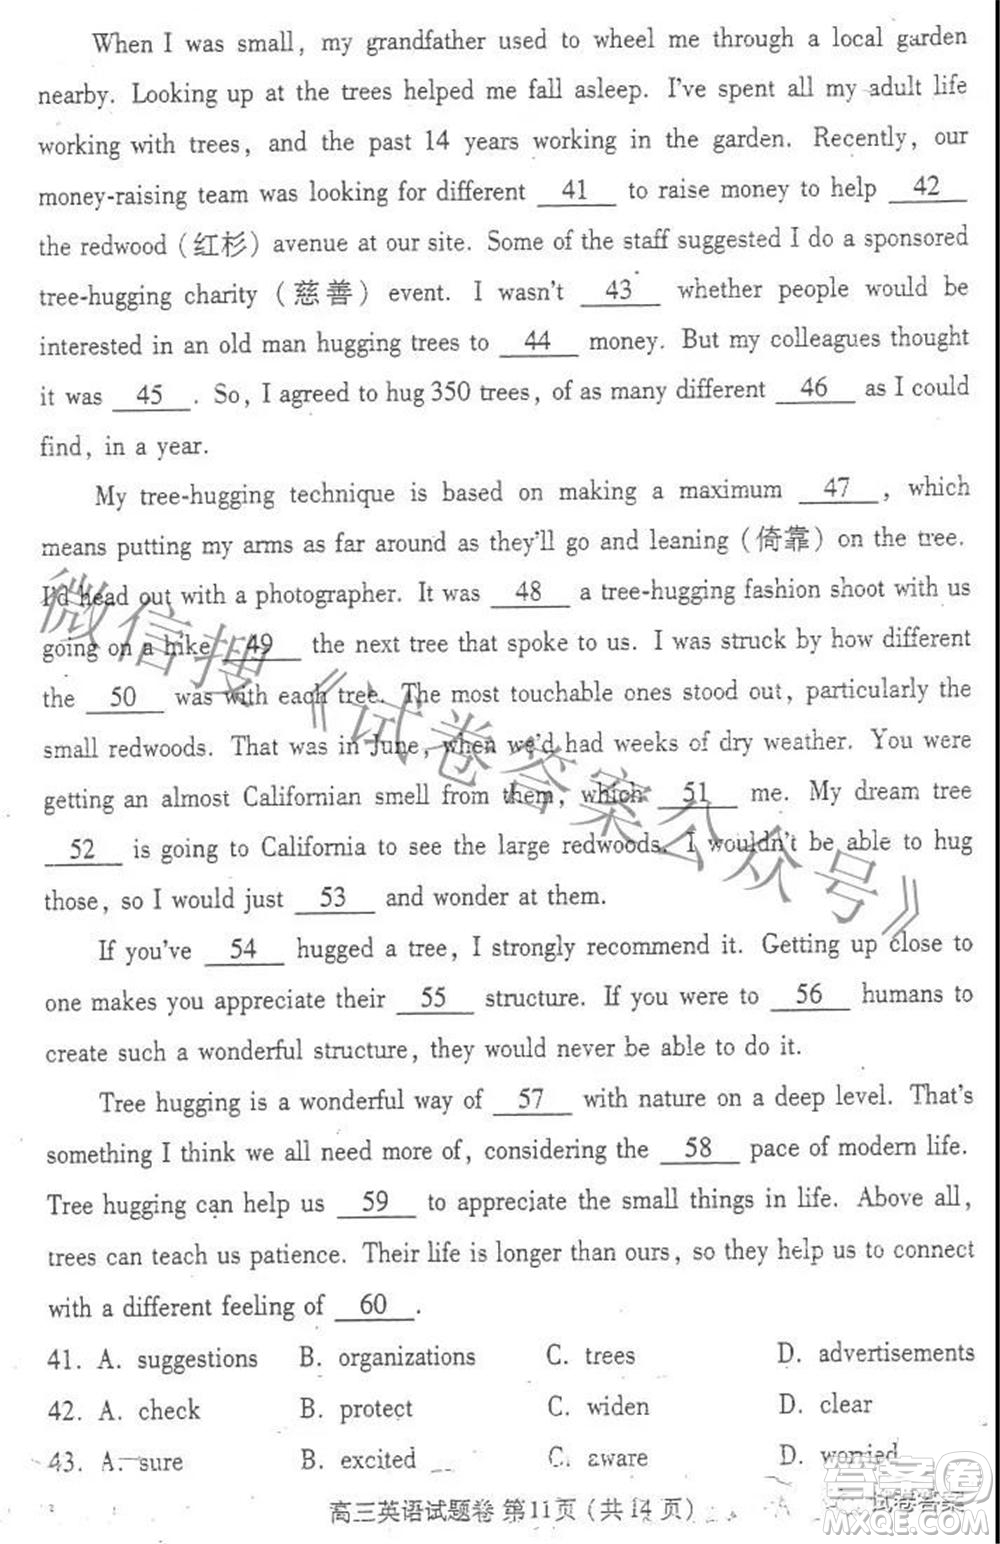 When I was small, my grandfather used to wheel me through a local garden
nearby. Looking up at the trees helped me fall asleep. I've spent all my adult life
working with trees, and the past 14 years working in the garden. Recently, our
money-raising team was looking for different 41 to raise money to help 42
the redwood (红杉) avenue at our site. Some of the staff suggested I do a sponsored
tree-hugging charity (慈善) event. I wasn't 43 whether people would be
interested in an old man hugging trees to 44 money. But my colleagues thought
it was 45 . So, I agreed to hug 350 trees, of as many different 46 as I could
find, in a year.
My tree-hugging technique is based on making a maximum 47 , which
means putting my arms as far around as they'll go and leaning (倚靠) on the tree.
I'd head out with a photographer. It was 48 a tree-hugging fashion shoot with us
going on a hike 49 the next tree that spoke to us. I was struck by how different
the 50 was with each tree. The most touchable ones stood out, particularly the
small redwoods. That was in June, when we'd had weeks of dry weather. You were
getting an almost Californian smell from them, which 51 me. My dream tree
52 is going to California to see the large redwoods. I wouldn't be able to hug
those, so I would just 53 and wonder at them.
If you've 54 hugged a tree, I strongly recommend it. Getting up close to
one makes you appreciate their 55 structure. If you were to 56 humans to
create such a wonderful structure, they would never be able to do it.
Tree hugging is a wonderful way of 57 with nature on a deep level. That's
something I think we all need more of, considering the 58 pace of modern life.
Tree hugging can help us 59 to appreciate the small things in life. Above all,
trees can teach us patience. Their life is longer than ours, so they help us to connect
with a different feeling of 60 .
41. A. suggestions B. organizations C. trees D. advertisements
42. A. check B. protect C. widen D. clear
43. A. sure B. excited C. aware D. worried
高三英语试题卷 第11页(共14页)
微信搜《试卷答案公众号》
答案卷
试卷答案
MXQE.COM